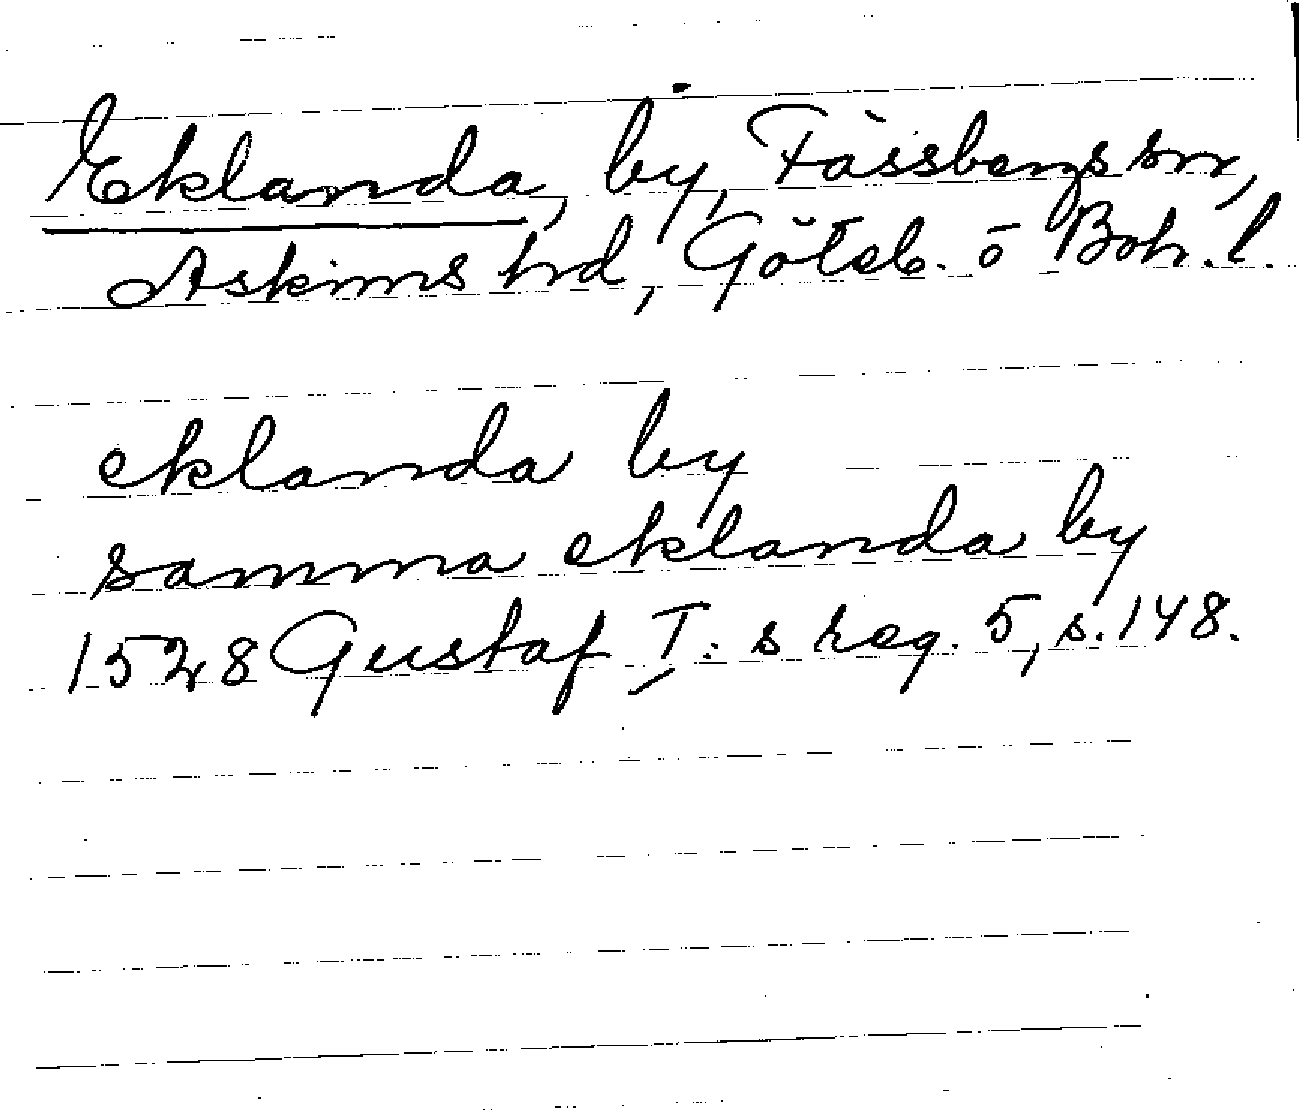 Eklanda, by, Fässbergs srn,
Askims hrd, Göteb. o Boh. l.
eklanda by
samma eklanda by
1528 Gustaf I: s reg. 5, s. 148.